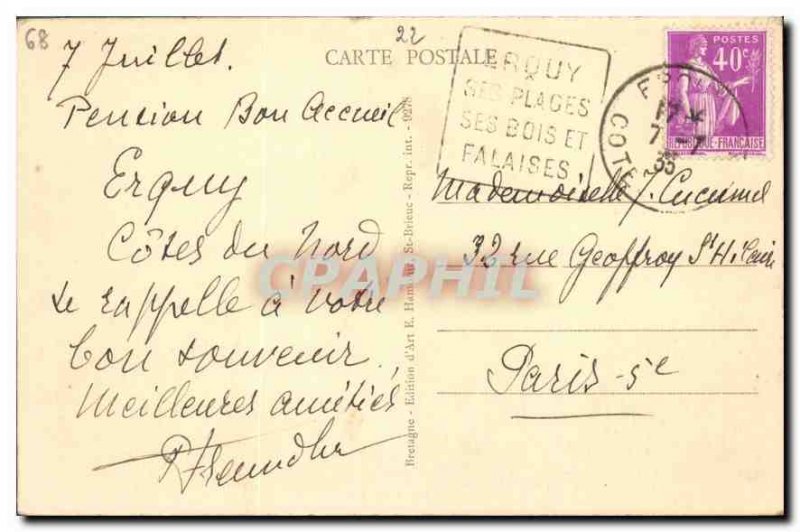 68
22
7 Juillet.
Pension Bon Accueil
Erquy
Côtes du Nord
se rappelle à votre
bon souvenir.
Meilleures amitiés
CARTE POSTALE
ERQUY
SES PLAGES
SES BOIS ET
FALAISES
POSTES
40c
REPUBLIQUE-FRANÇAISE
17
7 - 7
35
COTES
Mademoiselle J.
32 rue Geoffroy St Hilaire
Paris - 5e
Bretagne - Edition d'Art E. St-Brieuc - Repr. int. -
CPAPHIL